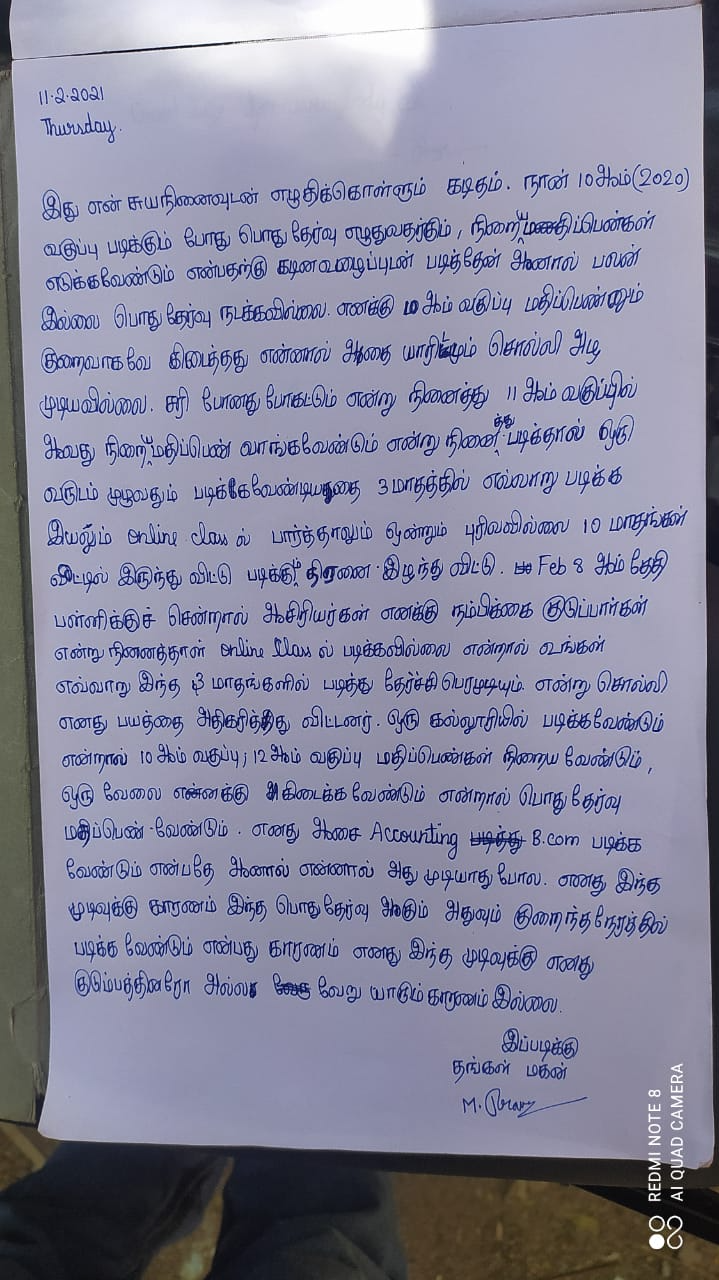 11.2.2021
Thursday.
இது என் சுயநினைவுடன் எழுதிக்கொள்ளும் கடிதம். நான் 10ஆம்(2020)
வகுப்பு படிக்கும் போது பொதுதேர்வு எழுதுவதற்கும், நிறைமதிப்பெண்கள்
எடுக்கவேண்டும் என்பதற்கு கடினவழைப்புடன் படித்தேன் ஆனால் பலன்
இல்லை பொதுதேர்வு நடக்கவில்லை. எனக்கு 10 ஆம் வகுப்பு மதிப்பெண்ணும்
குறைவாகவே கிடைத்தது என்னால் அதை யாரிடமும் சொல்லி அழ
முடியவில்லை. சரி போனது போகட்டும் என்று நினைத்து 11 ஆம் வகுப்பில்
ஆவது நிறைமதிப்பெண் வாங்கவேண்டும் என்று நினைத்து படித்தால் ஒரு
வருடம் முழுவதும் படிக்கவேண்டியதை 3மாதத்தில் எவ்வாறு படிக்க
இயலும் online class ல் பார்த்தாலும் ஒன்றும் புரிவில்லை 10 மாதங்கள்
வீட்டில் இருந்து விட்டு படிக்கும் திரனை இழந்து விட்டு. Feb 8 ஆம் தேதி
பள்ளிக்குச் சென்றால் ஆசிரியர்கள் எனக்கு நம்பிக்கை குடுப்பார்கள்
என்று நினைத்தாள் online Class ல் படிக்கவில்லை என்றால் உங்கள்
எவ்வாறு இந்த 3 மாதங்களில் படித்து தேர்ச்சி பெரமுடியும். என்று சொல்லி
எனது பயத்தை அதிகரித்து விட்டனர். ஒரு கல்லூரியில் படிக்கவேண்டும்
என்றால் 10 ஆம் வகுப்பு; 12 ஆம் வகுப்பு மதிப்பெண்கள் நிறைய வேண்டும்,
ஒரு வேலை எனக்கு கிடைக்க வேண்டும் என்றால் பொதுதேர்வு
மதிப்பெண் வேண்டும். எனது ஆசை Accounting படித்து B.com படிக்க
வேண்டும் என்பதே ஆனால் என்னால் அது முடியாது போல. எனது இந்த
முடிவுக்கு காரணம் இந்த பொதுதேர்வு ஆகும் அதுவும் குறைந்தநேரத்தில்
படிக்க வேண்டும் என்பது காரணம் எனது இந்த முடிவுக்கு எனது
குடும்பத்தினரோ அல்ல வேறு யாரும் காரணம் இல்லை.
இப்படிக்கு
தங்கள் மகன்
M.
REDMI NOTE 8
AI QUAD CAMERA